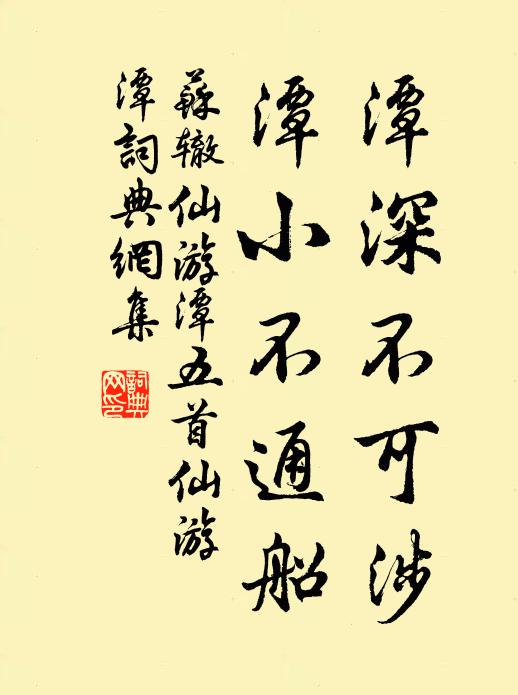 潭深不可涉
潭小不通船
蘇辙仙游潭五首仙游
潭詞典網集
詞典
网印